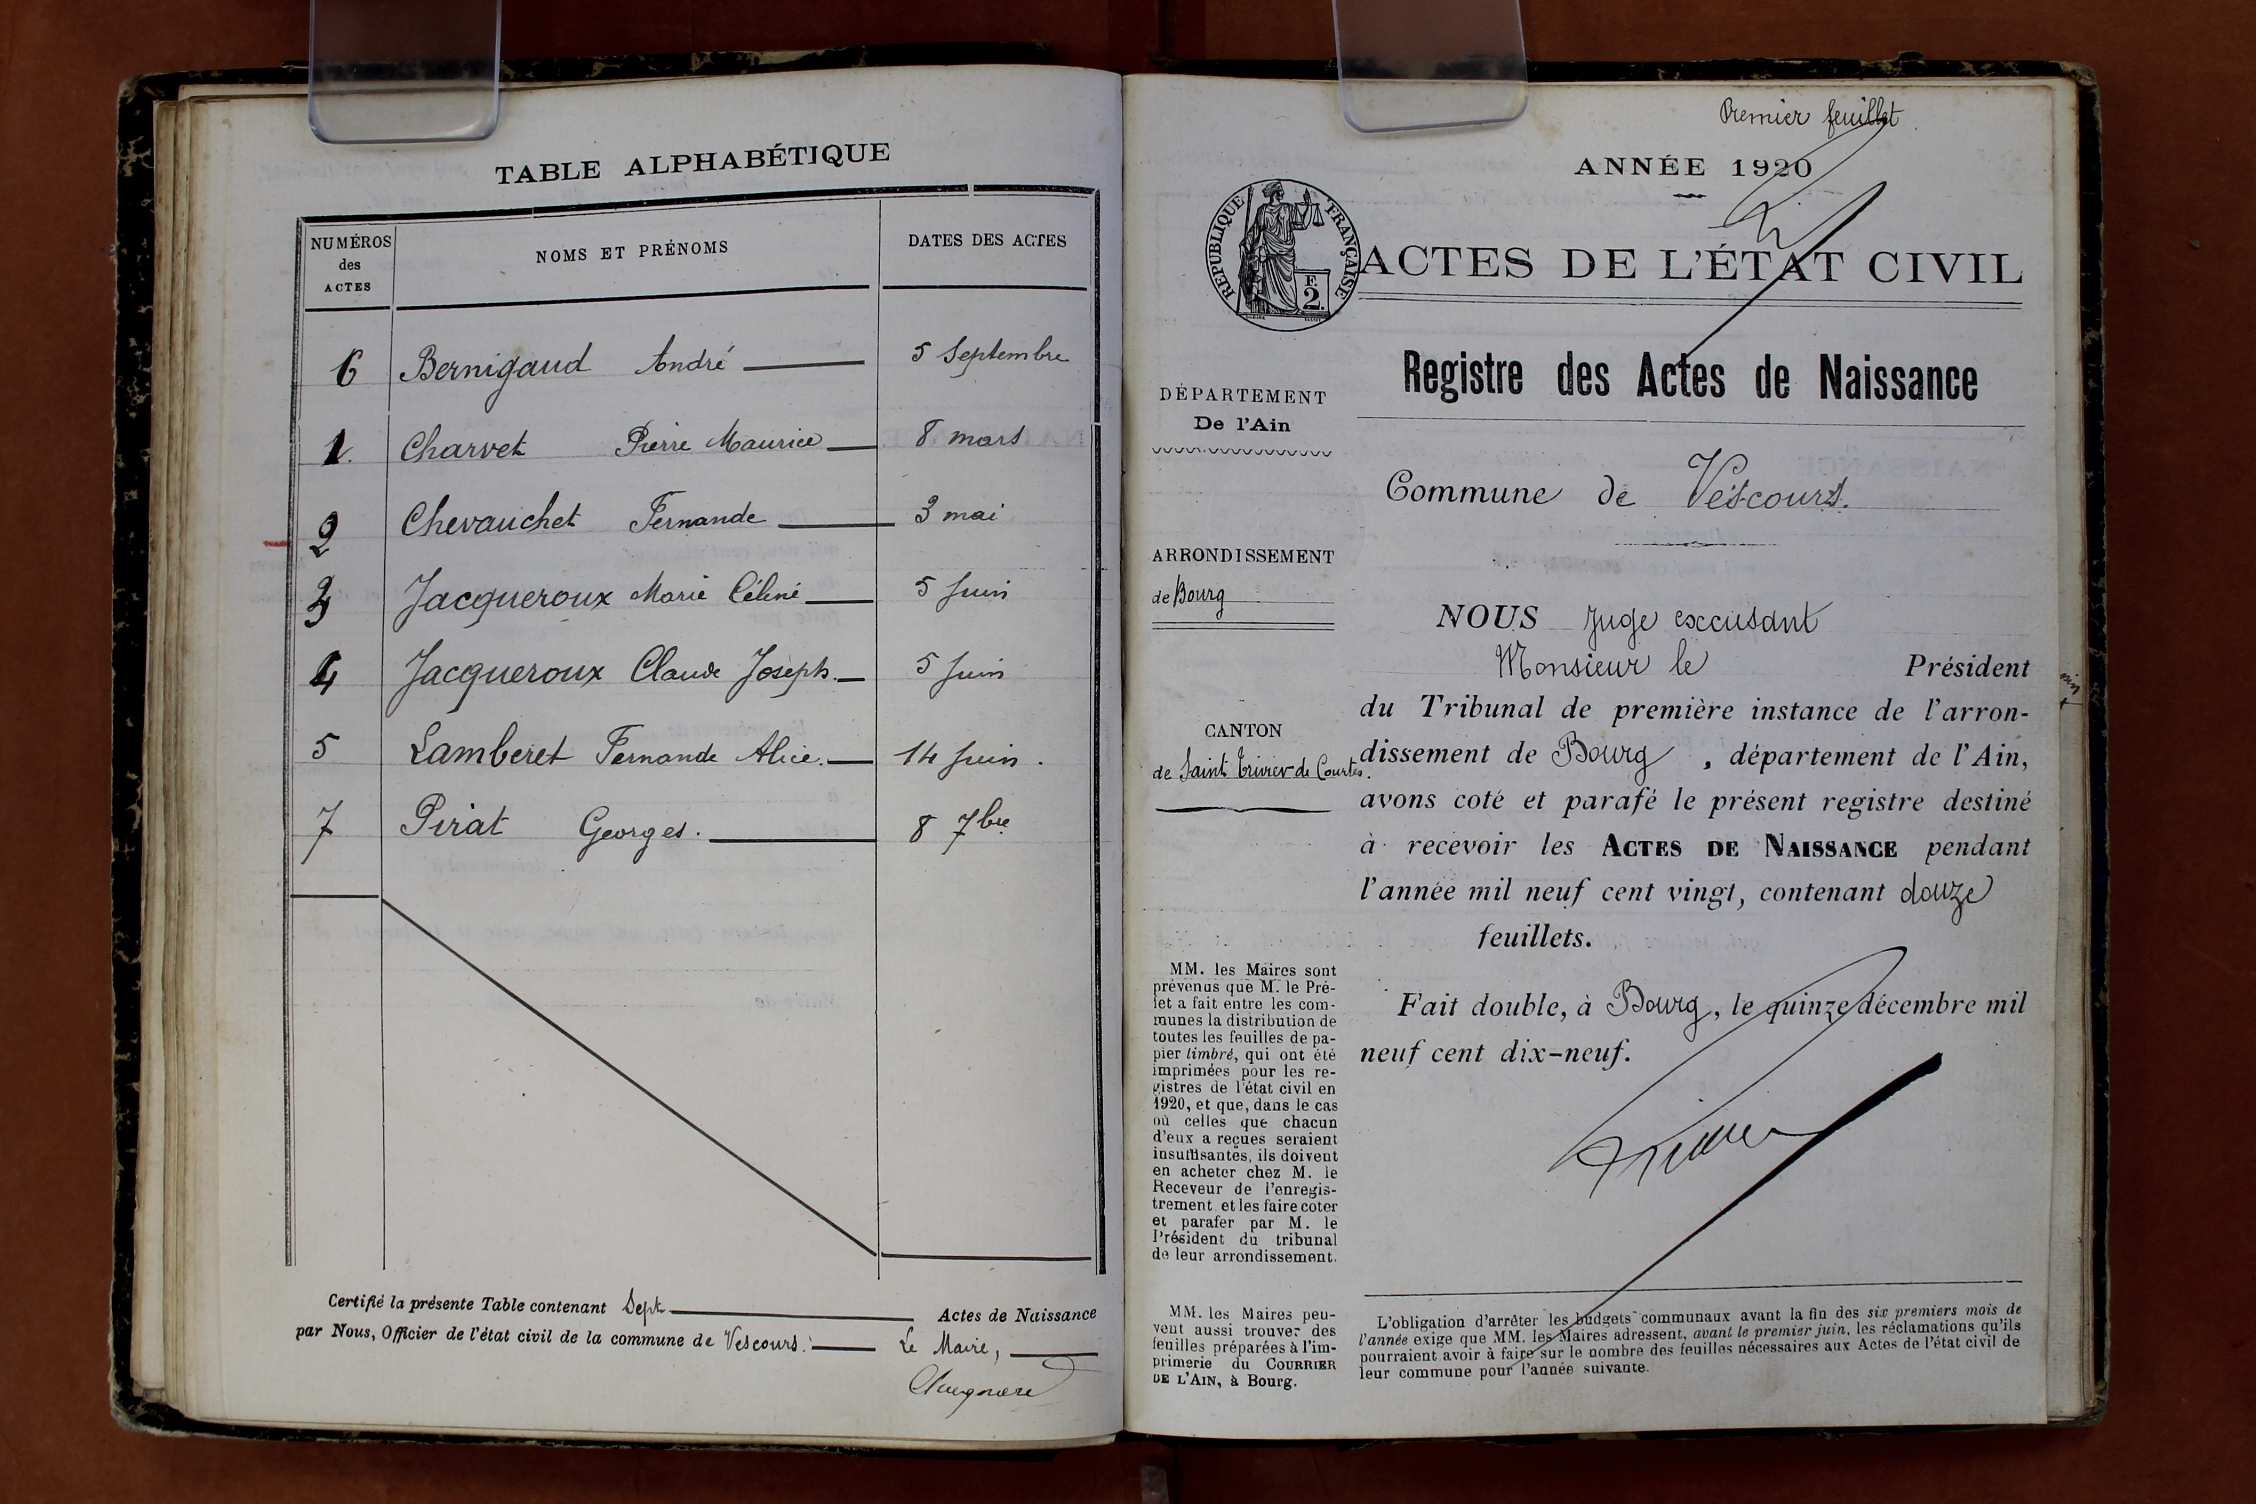 TABLE ALPHABÉTIQUE
NUMÉROS des ACTES
NOMS ET PRÉNOMS
DATES DES ACTES
6 Bernigaud André 5 Septembre
1. Charvet Pierre Maurice 8 mars
2 Chevauchet Fernande 3 mai
3 Jacqueroux Marie Céline 5 Juin
4 Jacqueroux Claude Joseph. 5 Juin
5 Lamberet Fernande Alice. 14 Juin.
7 Pirat Georges. 8 7bre
Certifié la présente Table contenant Sept Actes de Naissance
par Nous, Officier de l'état civil de la commune de Vescours. Le Maire,
Premier feuillet
ANNÉE 1920
RÉPUBLIQUE FRANÇAISE
F. 2.
ACTES DE L'ÉTAT CIVIL
Registre des Actes de Naissance
DÉPARTEMENT
De l'Ain
Commune de Vescours.
ARRONDISSEMENT
de Bourg
CANTON
de Saint Trivier de Courtes.
NOUS Juge excusant
Monsieur le Président
du Tribunal de première instance de l'arron-
dissement de Bourg, département de l'Ain,
avons coté et parafé le présent registre destiné
à recevoir les ACTES DE NAISSANCE pendant
l'année mil neuf cent vingt, contenant douze
feuillets.
Fait double, à Bourg, le quinze décembre mil
neuf cent dix-neuf.
MM. les Maires sont
prévenus que M. le Pré-
fet a fait entre les com-
munes la distribution de
toutes les feuilles de pa-
pier timbré, qui ont été
imprimées pour les re-
gistres de l'état civil en
1920, et que, dans le cas
où celles que chacun
d'eux a reçues seraient
insuffisantes, ils doivent
en acheter chez M. le
Receveur de l'enregis-
trement et les faire coter
et parafer par M. le
Président du tribunal
de leur arrondissement.
MM. les Maires peu-
vent aussi trouver des
feuilles préparées à l'im-
primerie du COURRIER
DE L'AIN, à Bourg.
L'obligation d'arrêter les budgets communaux avant la fin des six premiers mois de
l'année exige que MM. les Maires adressent, avant le premier juin, les réclamations qu'ils
pourraient avoir à faire sur le nombre des feuilles nécessaires aux Actes de l'état civil de
leur commune pour l'année suivante.